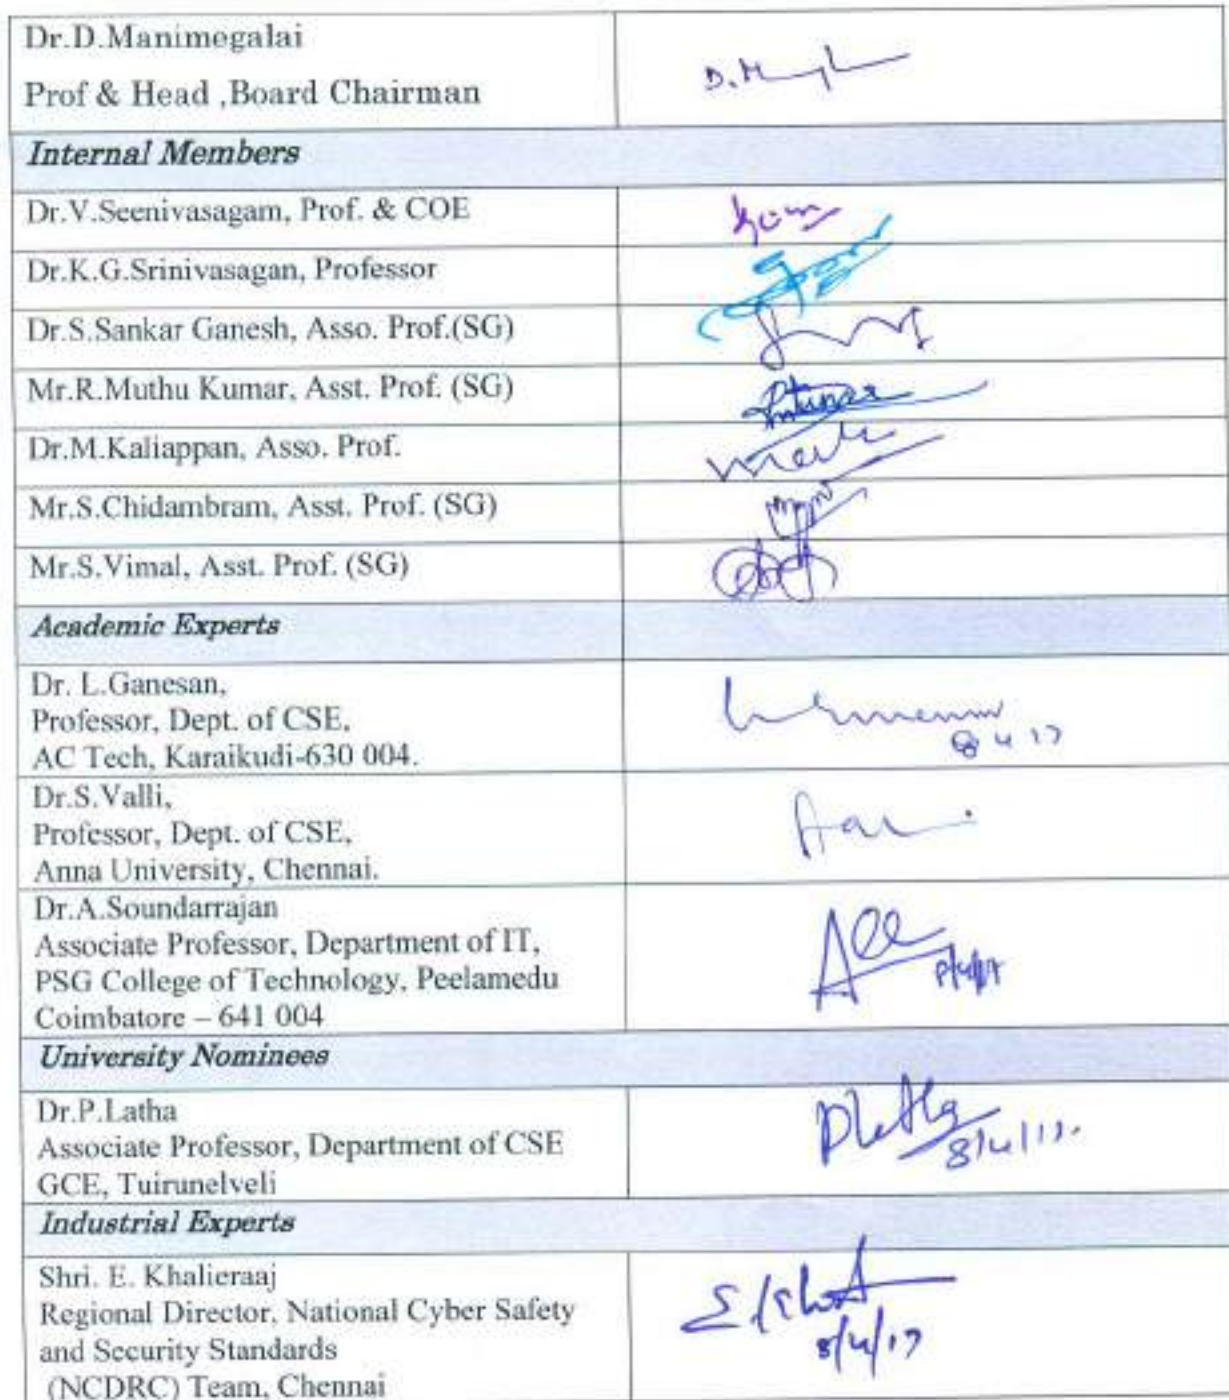 Dr.D.Manimegalai
Prof & Head ,Board Chairman
D.M
Internal Members
Dr.V.Seenivasagam, Prof. & COE
Dr.K.G.Srinivasagan, Professor
Dr.S.Sankar Ganesh, Asso. Prof.(SG)
Mr.R.Muthu Kumar, Asst. Prof. (SG)
Dr.M.Kaliappan, Asso. Prof.
Mr.S.Chidambram, Asst. Prof. (SG)
Mr.S.Vimal, Asst. Prof. (SG)
Academic Experts
Dr. L.Ganesan,
Professor, Dept. of CSE,
AC Tech, Karaikudi-630 004.
8 4 17
Dr.S.Valli,
Professor, Dept. of CSE,
Anna University, Chennai.
Dr.A.Soundarrajan
Associate Professor, Department of IT,
PSG College of Technology, Peelamedu
Coimbatore – 641 004
8/4/17
University Nominees
Dr.P.Latha
Associate Professor, Department of CSE
GCE, Tuirunelveli
PLatha
8/4/17.
Industrial Experts
Shri. E. Khalieraaj
Regional Director, National Cyber Safety
and Security Standards
(NCDRC) Team, Chennai
8/4/17